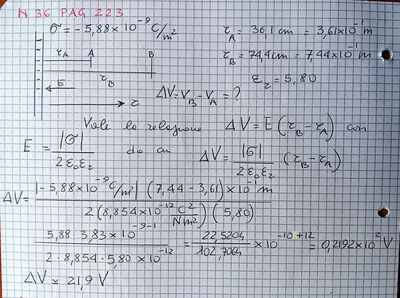 N 36 PAG 223
σ = -5,88×10⁻⁹ C/m²
τ_A = 36,1 cm = 3,61×10⁻¹ m
τ_B = 74,4 cm = 7,44×10⁻¹ m
ε_r = 5,80
τ_A A B
τ_B
E
τ
ΔV = V_B - V_A = ?
Vale la relazione ΔV = E (τ_B - τ_A) con
E = |σ| / 2ε₀ε_r da cui ΔV = |σ| / 2ε₀ε_r (τ_B - τ_A)
ΔV = |-5,88×10⁻⁹ C/m²| (7,44-3,61)×10⁻¹ m / 2 (8,854×10⁻¹² C²/Nm²) (5,80)
5,88·3,83×10⁻⁹⁻¹ / 2·8,854·5,80×10⁻¹² = 22,5204 / 102,7064 ×10⁻¹⁰⁺¹² = 0,2192×10² V
ΔV ≃ 21,9 V